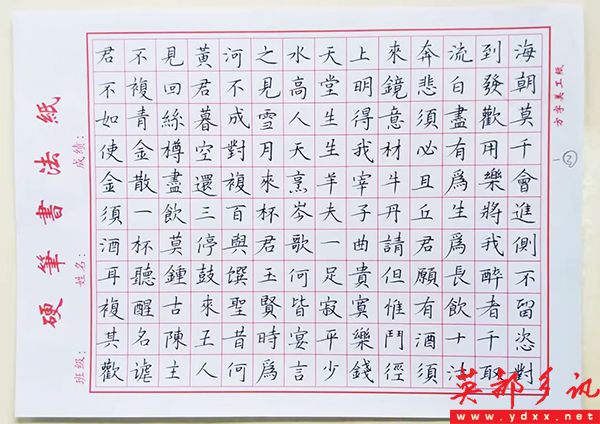 君不見黃河之水天上來奔流到海
不複回君不見高堂明鏡悲白發朝
如青絲暮成雪人生得意須盡歡莫
使金樽空對月天生我材必有用千
金散盡還複來烹羊宰牛且爲樂會
須一飲三百杯岑夫子丹丘生將進
酒杯莫停與君歌一曲請君爲我側
耳聽鍾鼓饌玉何足貴但願長醉不
複醒古來聖賢皆寂寞惟有飲者留
其名陳王昔時宴平樂鬥酒十千恣
歡謔主人何爲言少錢徑須沽取對
硬筆書法紙
班级： 姓名： 成绩：
一②
英都乡讯
www.ydxx.net